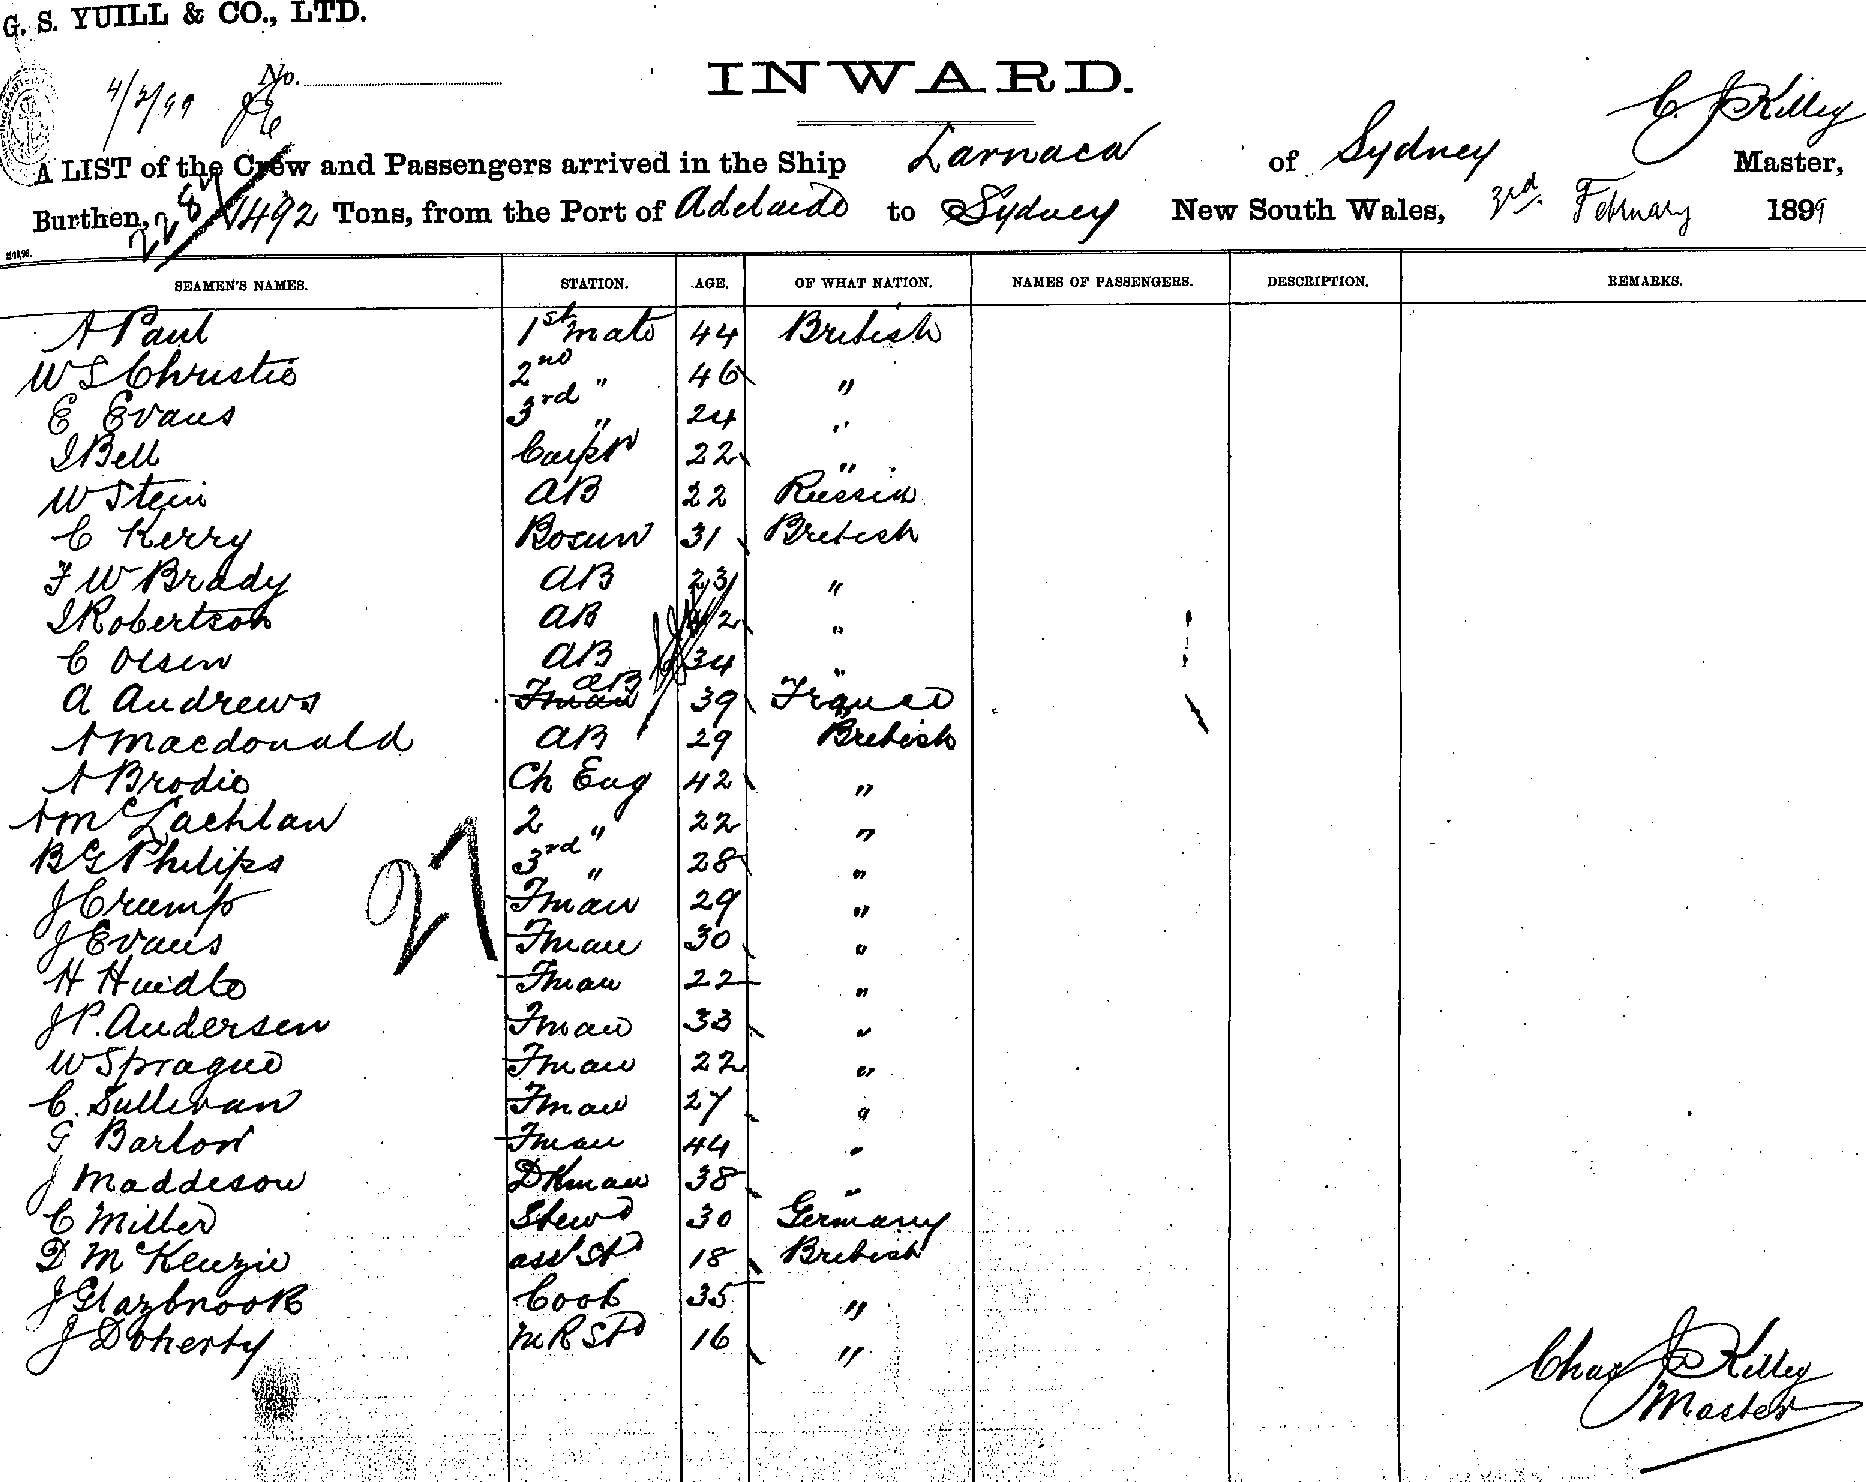 G. S. YUILL & CO., LTD.
4/2/99 No.
INWARD.
C. J. Killey
A LIST of the Crew and Passengers arrived in the Ship Larnaca of Sydney Master,
Burthen, 2284 1492 Tons, from the Port of Adelaide to Sydney New South Wales, 3rd. February 1899
SEAMEN'S NAMES. STATION. AGE. OF WHAT NATION. NAMES OF PASSENGERS. DESCRIPTION. REMARKS.
A Paul 1st mate 44 British
W S Christie 2nd " 46 "
E Evans 3rd " 24 "
J Bell Carpr 22 "
W Stein AB 22 Russia
C Kerry Bosun 31 British
F W Brady AB 23 "
J Robertson AB 42 "
C Olsen AB 34 "
A Andrews Fman AB 39 France
A Macdonald AB 29 British
A Brodie Ch Eng 42 "
A McLachlan 2 " 22 "
B G Philips 3rd " 28 "
J Crump Fman 29 "
J Evans Fman 30 "
H Fman 22 "
J P. Andersen Fman 33 "
W Sprague Fman 22 "
C. Sullivan Fman 27 "
G Barlow Fman 44 "
J Maddison Dkman 38 "
C Miller Stewd 30 Germany
D McKenzie asst Std 18 British
J Glazbrook Cook 35 "
J Doherty M R Std 16 "
27
Chas J Killey
Master